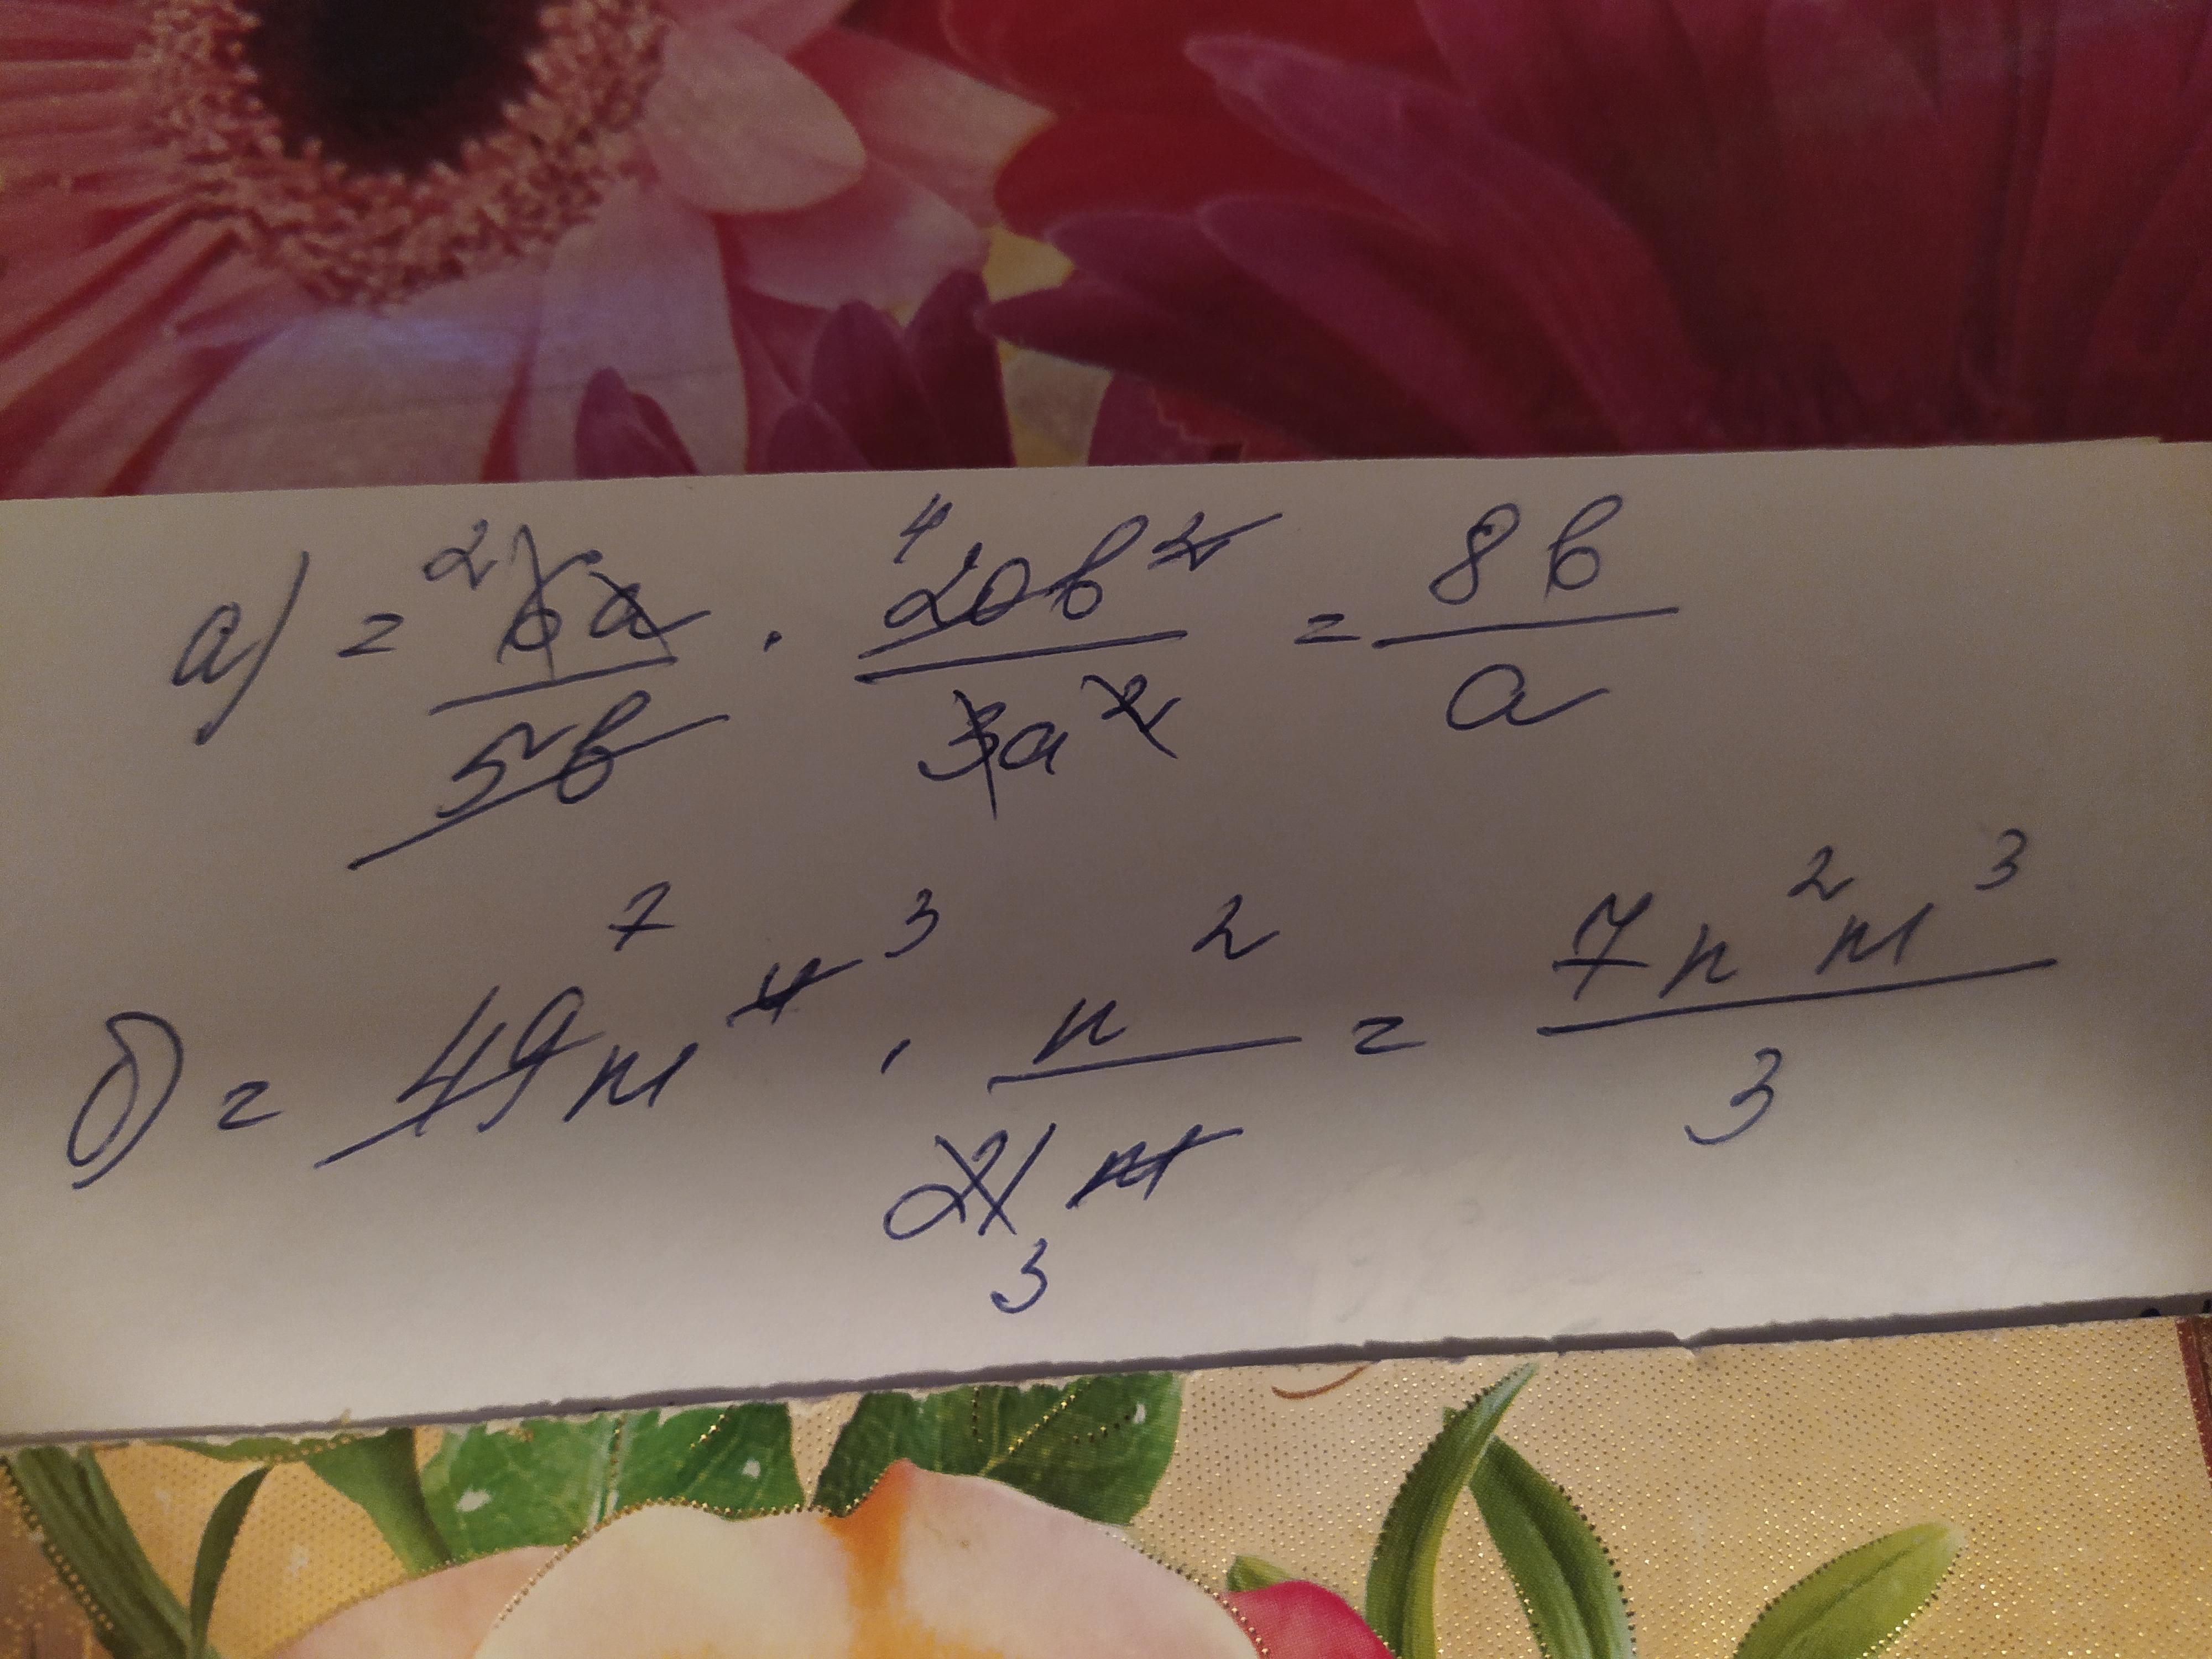 а) = ²6a/5b · ⁴20b²/3a² = 8b/a
б) = 49⁷m⁴ ³ · n²/21₃m = 7n²m³/3